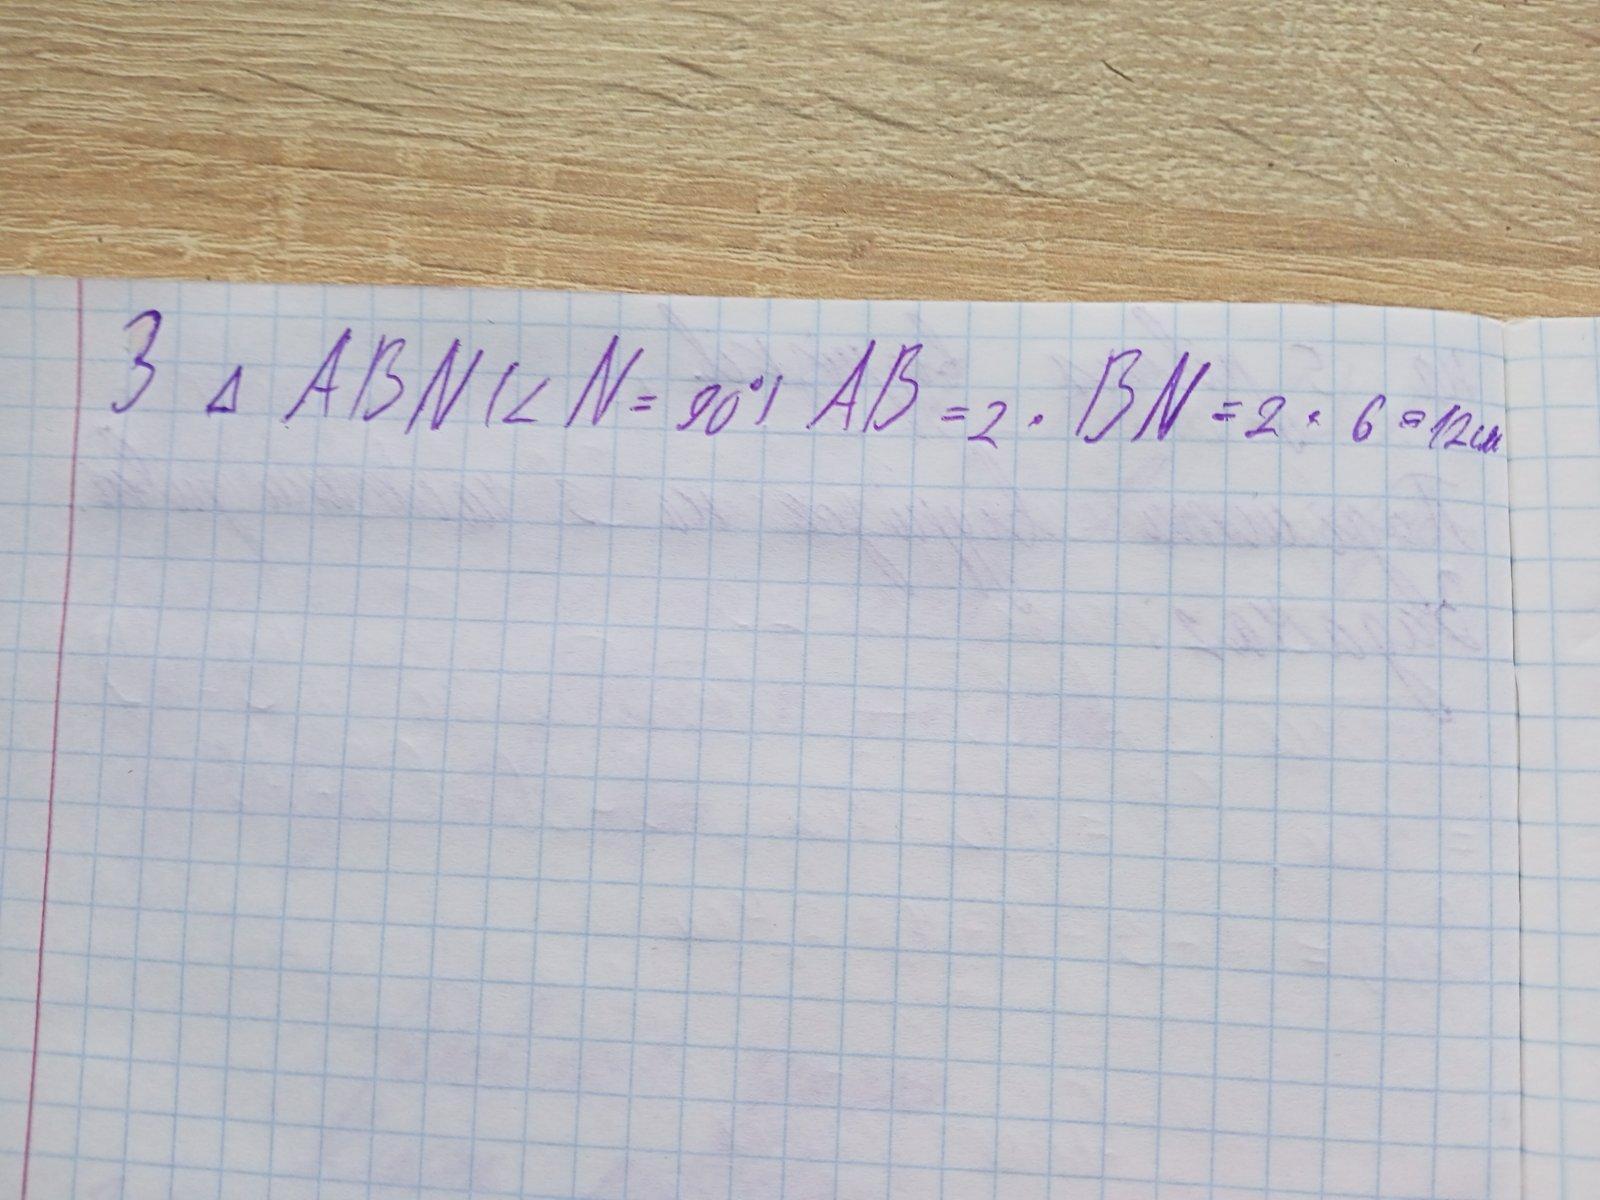 З Δ ABN (∠ N = 90°) AB = 2 · BN = 2 · 6 = 12 см